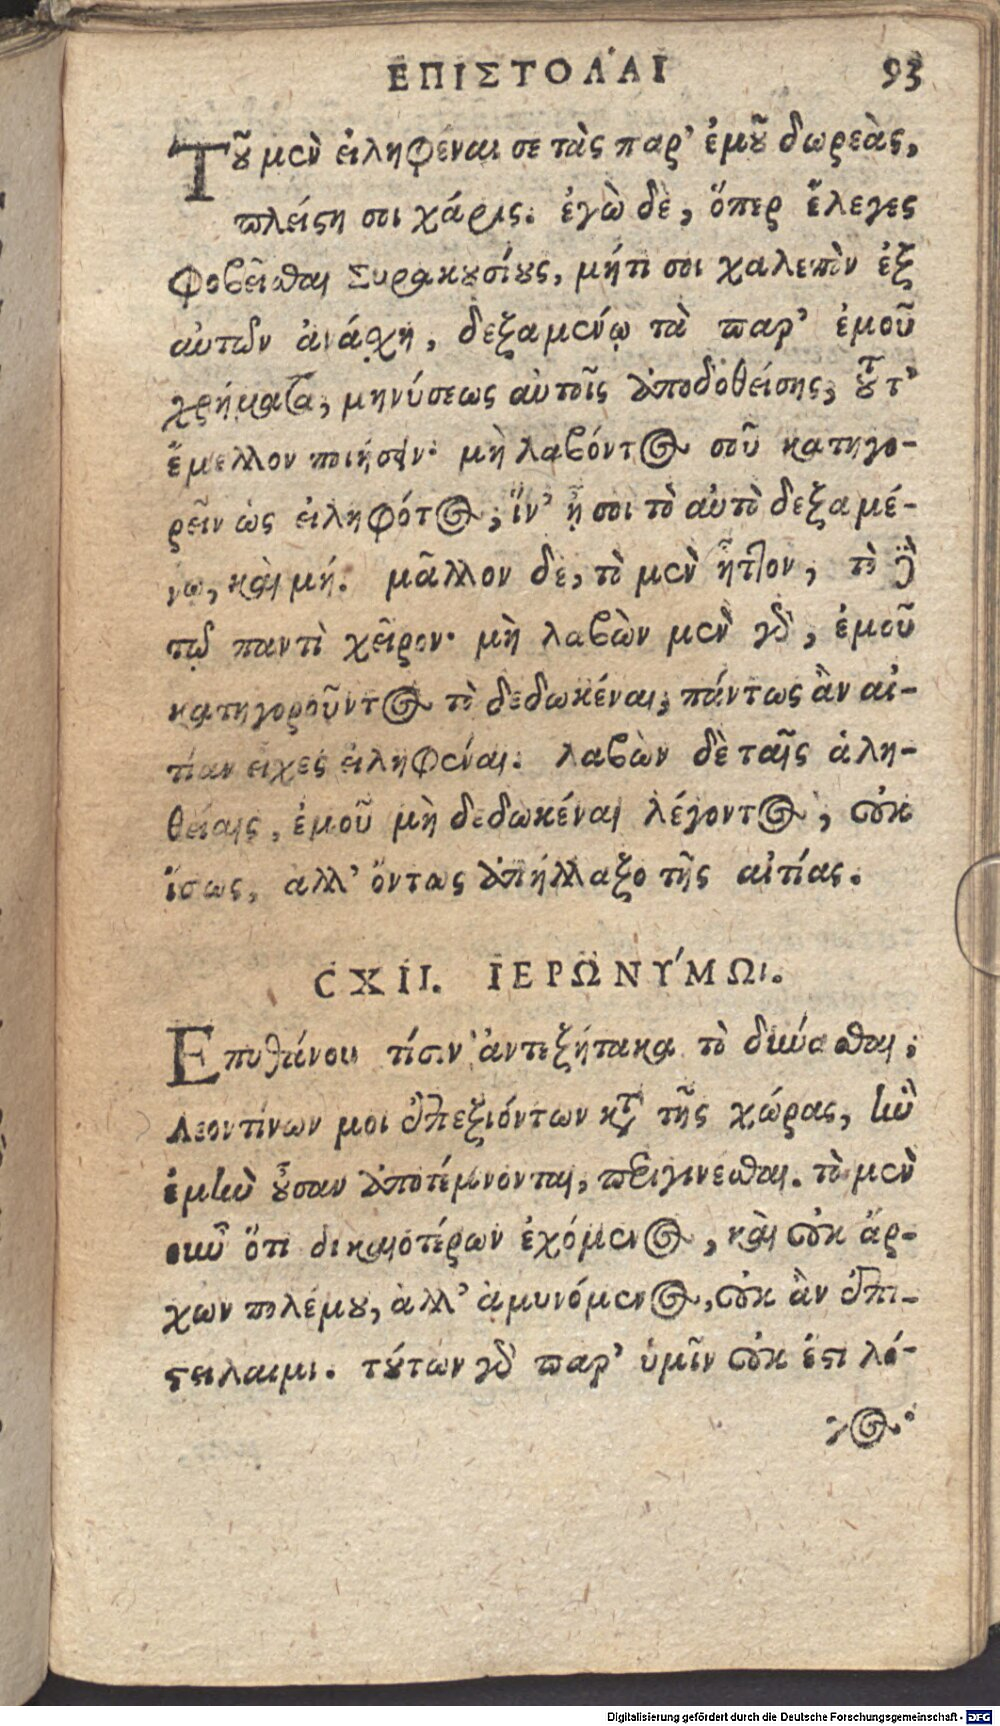 ΕΠΙΣΤΟΛΑΙ 93
Τοῦ μὲν εἰληφέναι σε τὰς παρ' ἐμοῦ δωρεὰς,
πλείστη σοι χάρις. ἐγὼ δὲ, ὅπερ ἔλεγες
φοβεῖσθαι Συρακουσίους, μήτι σοι χαλεπὸν ἐξ
αὐτῶν ἀπάρχῃ, δεξαμένῳ τὰ παρ' ἐμοῦ
χρήματα, μηνύσεως αὐτοῖς ἀποδοθείσης, τοῦτ'
ἔμελλον ποιήσειν· μὴ λαβόντος σοῦ κατηγο-
ρεῖν ὡς εἰληφότος, ἵν' ᾖ σοι τὸ αὐτὸ δεξαμέ-
νῳ, καὶ μή. μᾶλλον δὲ, τὸ μὲν ἧττον, τὸ δὲ
τῷ παντὶ χεῖρον· μὴ λαβὼν μὲν γὰρ, ἐμοῦ
κατηγοροῦντος τὸ δεδωκέναι, πάντως ἂν αἰ-
τίαν εἶχες εἰληφέναι. λαβὼν δὲ ταῖς ἀλη-
θείαις, ἐμοῦ μὴ δεδωκέναι λέγοντος, οὐκ
ἴσως, ἀλλ' ὄντως ἀπήλλαξο τῆς αἰτίας.
CXII. ΙΕΡΩΝΥΜΩι.
Επυθάνου τίσιν ἀντεζήτηκα τὸ δύνασθαι,
Λεοντίνων μοι ἐπεξιόντων κατὰ τῆς χώρας, ἣν
ἐμὴν οὖσαν ἀποτέμνονται, περιγίνεσθαι. τὸ μὲν
οὖν ὅτι δικαιοτέρων ἐχόμενος, καὶ οὐκ ἄρ-
χων πολέμου, ἀλλ' ἀμυνόμενος, οὐκ ἂν ἐπι-
στείλαιμι. τούτων γὰρ παρ' ὑμῖν οὐκ ἔστι λό-
γος·
Digitalisierung gefördert durch die Deutsche Forschungsgemeinschaft - DFG